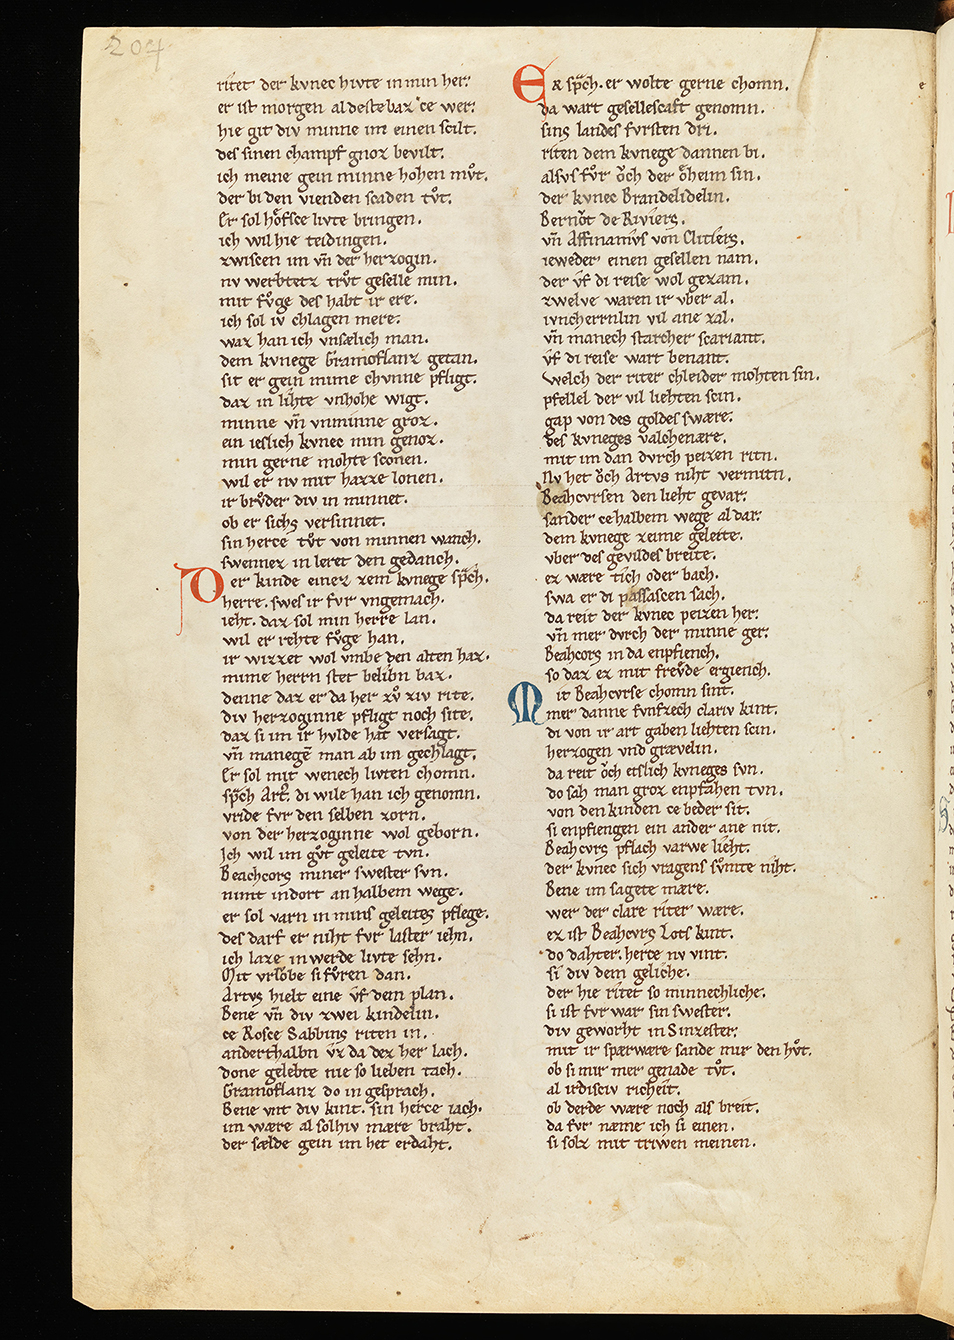 204
ritet der kvnec hivte in min her.
er ist morgen al deste baz ce wer.
hie git div minne im einen scilt.
des sinen champf gnoz bevilt.
ich meine gein minne hohen mvͦt.
der bi den vienden scaden tvͦt.
Er sol hoͤfsce livte bringen.
ich wil hie teidingen.
zwiscen im vn̄ der herzogin.
nv werbtetz trvͦt geselle min.
mit fvͦge des habt ir ere.
ich sol iv chlagen mere.
waz han ich vnsælich man.
dem kvnege Gramoflanz getan.
sit er gein mime chvnne pfligt.
daz in lihte vnhohe wigt.
minne vn̄ vnminne groz.
ein ieslich kvnec min genoz.
min gerne mohte sconen.
wil er nv mit hazze lonen.
ir brvͦder div in minnet.
ob er sichs versinnet.
sin herce tvͦt von minnen wanch.
swennez in leret den gedanch.
Der kinde einez zem kvnege sp̄ch.
herre. swes ir fvr vngemach.
ieht. daz sol min herre lan.
wil er rehte fvͦge han.
ir wizzet wol vmbe den alten haz.
mime herrn stet belibn baz.
denne daz er da her zvͦ ziv rite.
div herzoginne pfligt noch site.
daz si im ir hvlde hat versagt.
vn̄ manegē man ab im gechlagt.
Er sol mit wenech livten chomn.
sp̄ch Art̄. di wile han ich genomn.
vride fvr den selben zorn.
von der herzoginne wol geborn.
Ich wil im gvͦt geleite tvn.
Beachcors miner swester svn.
nimt in dort an halbem wege.
er sol varn in mins geleites pflege.
des darf er niht fvr laster iehn.
ich laze in werde livte sehn.
Mit vrloͮbe si fvͦren dan.
Artvs hielt eine v̂f dem plan.
Bene vn̄ div zwei kindelin.
ce Rosce Sabbins riten in.
anderthalbn v̂z da dez her lach.
done gelebte nie so lieben tach.
Gramoflanz do in gesprach.
Bene vnt div kint. sin herce iach.
im wære al solhiv mære braht.
der sælde gein im het erdaht.
ER sp̄ch. er wolte gerne chomn.
da wart gesellescaft genomn.
sins landes fvrsten dri.
riten dem kvnege dannen bi.
alsvs fvͦr oͮch der oͤheim sin.
der kvnec Brandelidelin.
Bernoͮt de Riviers.
vn̄ Affinamvs von Clitiers.
ieweder einen gesellen nam.
der v̂f di reise wol gezam.
zwelve waren ir vber al.
ivncherrnlin vil ane zal.
vn̄ manech starcher scariant.
v̂f di reise wart benant.
Welch der riter chleider mohten sin.
pfellel der vil liehten scin.
gap von des goldes swære.
des kvneges valchenære.
mit im dan dvrch peizen ritn.
Nv het oͮch Artvs niht vermitn.
Beahcvrsen den lieht gevar.
sander ce halbem wege al dar.
dem kvnege zeime geleite.
vber des gevildes breite.
ez wære tich oder bach.
swa er di passascen sach.
da reit der kvnec peizen her.
vn̄ mer dvrch der minne ger.
Beahcors in da enpfiench.
so daz ez mit frevͦde ergiench.
Mit Beahcvrse chomn sint.
mer danne fvnfzech clariv kint.
di von ir art gaben liehten scin.
herzogen vnd grævelin.
da reit oͮch etslich kvneges svn.
do sah man groz enpfahen tvn.
von den kinden ce beder sit.
si enpfiengen ein ander ane nit.
Beahcvrs pflach varwe lieht.
der kvnec sich vragens svͦnte niht.
Bene im sagete mære.
wer der clare riter wære.
ez ist Beahcvrs Lots kint.
do dahter. herce nv vint.
si div dem geliche.
der hie ritet so minnechliche.
si ist fvr war sin swester.
div geworht in Sinzester.
mit ir spærwære sande mir den hvͦt.
ob si mir mer genade tvͦt.
al irdisciv richeit.
ob derde wære noch als breit.
da fvr næme ich si einen.
si solz mit triwen meinen.